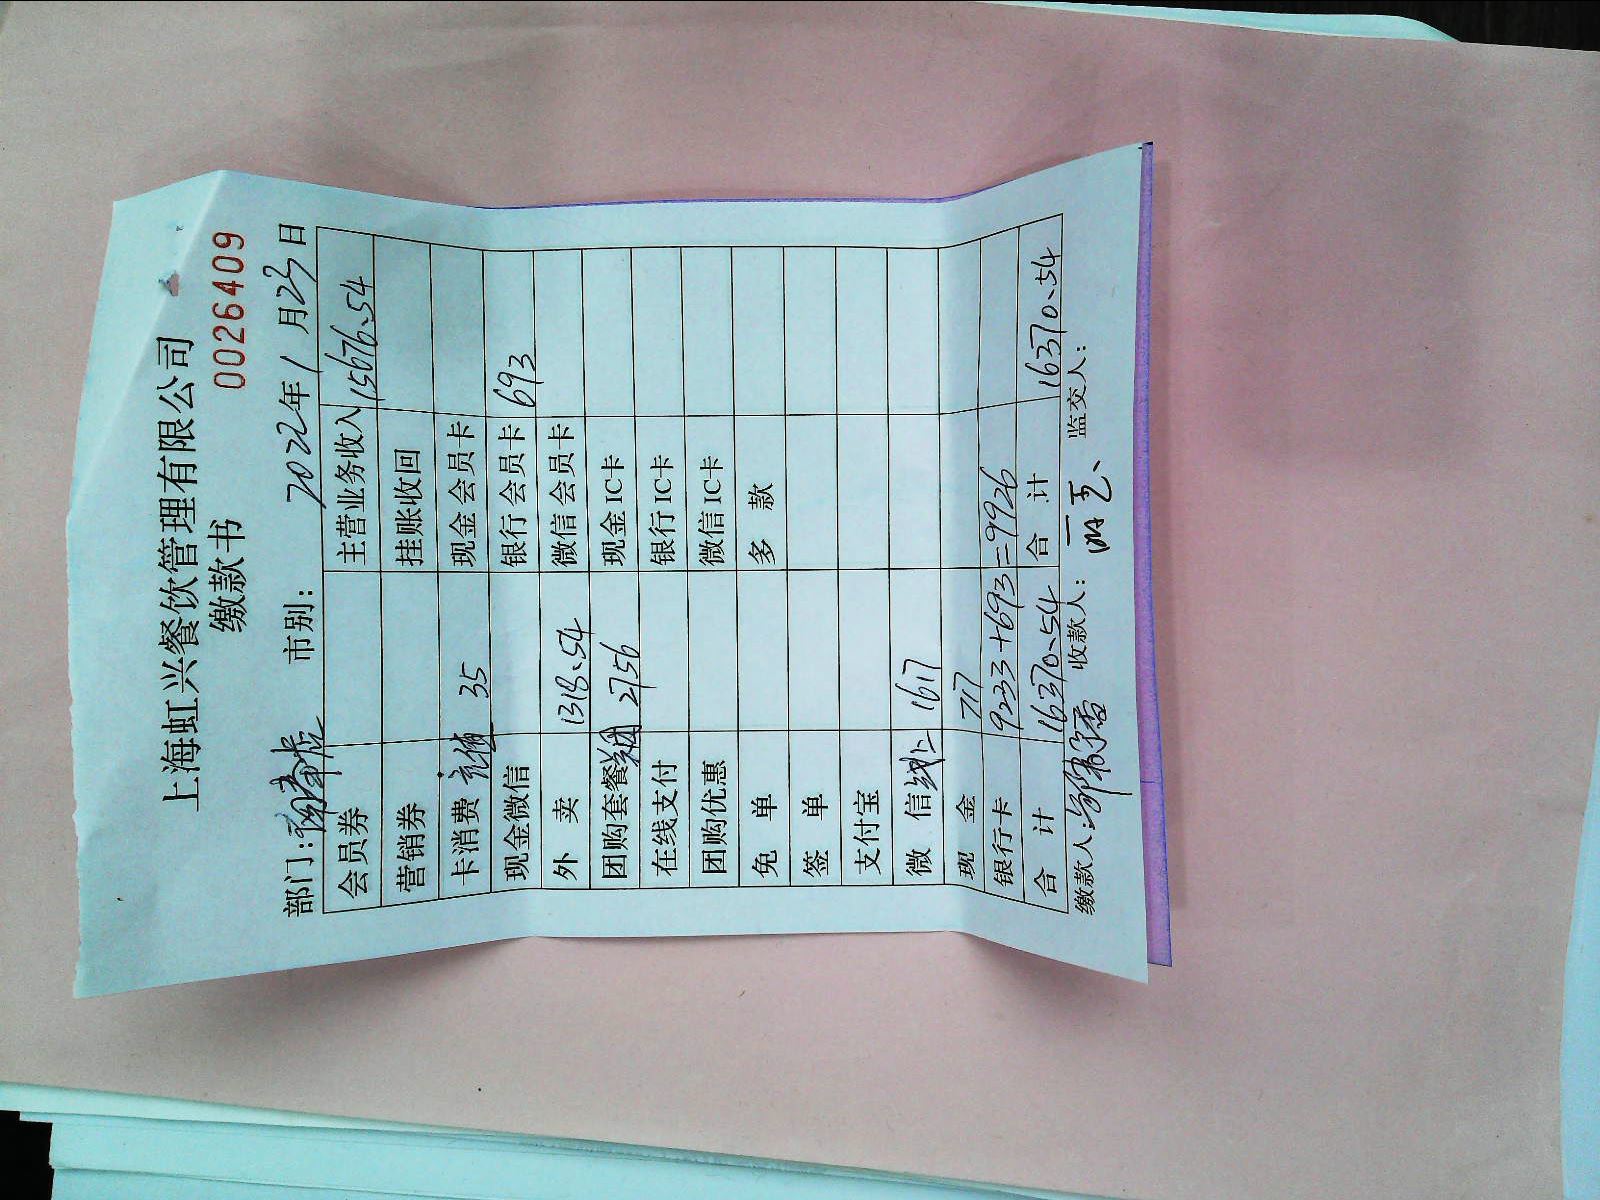 上海虹兴餐饮管理有限公司
缴款书
0026409
部门: 市别: 2022年1月23日
会员券 主营业务收入 15676.54
营销券 挂账收回
卡消费 充值 35 现金会员卡
现金微信 银行会员卡 693
外 卖 1318.54 微信会员卡
团购套餐 美团 2756 现金IC卡
在线支付 银行IC卡
团购优惠 微信IC卡
免 单 多 款
签 单
支付宝
微 信 线上 1617
现 金 717
银行卡 9233+693=9926
合 计 16370.54 合 计 16370.54
缴款人: 收款人: 监交人: